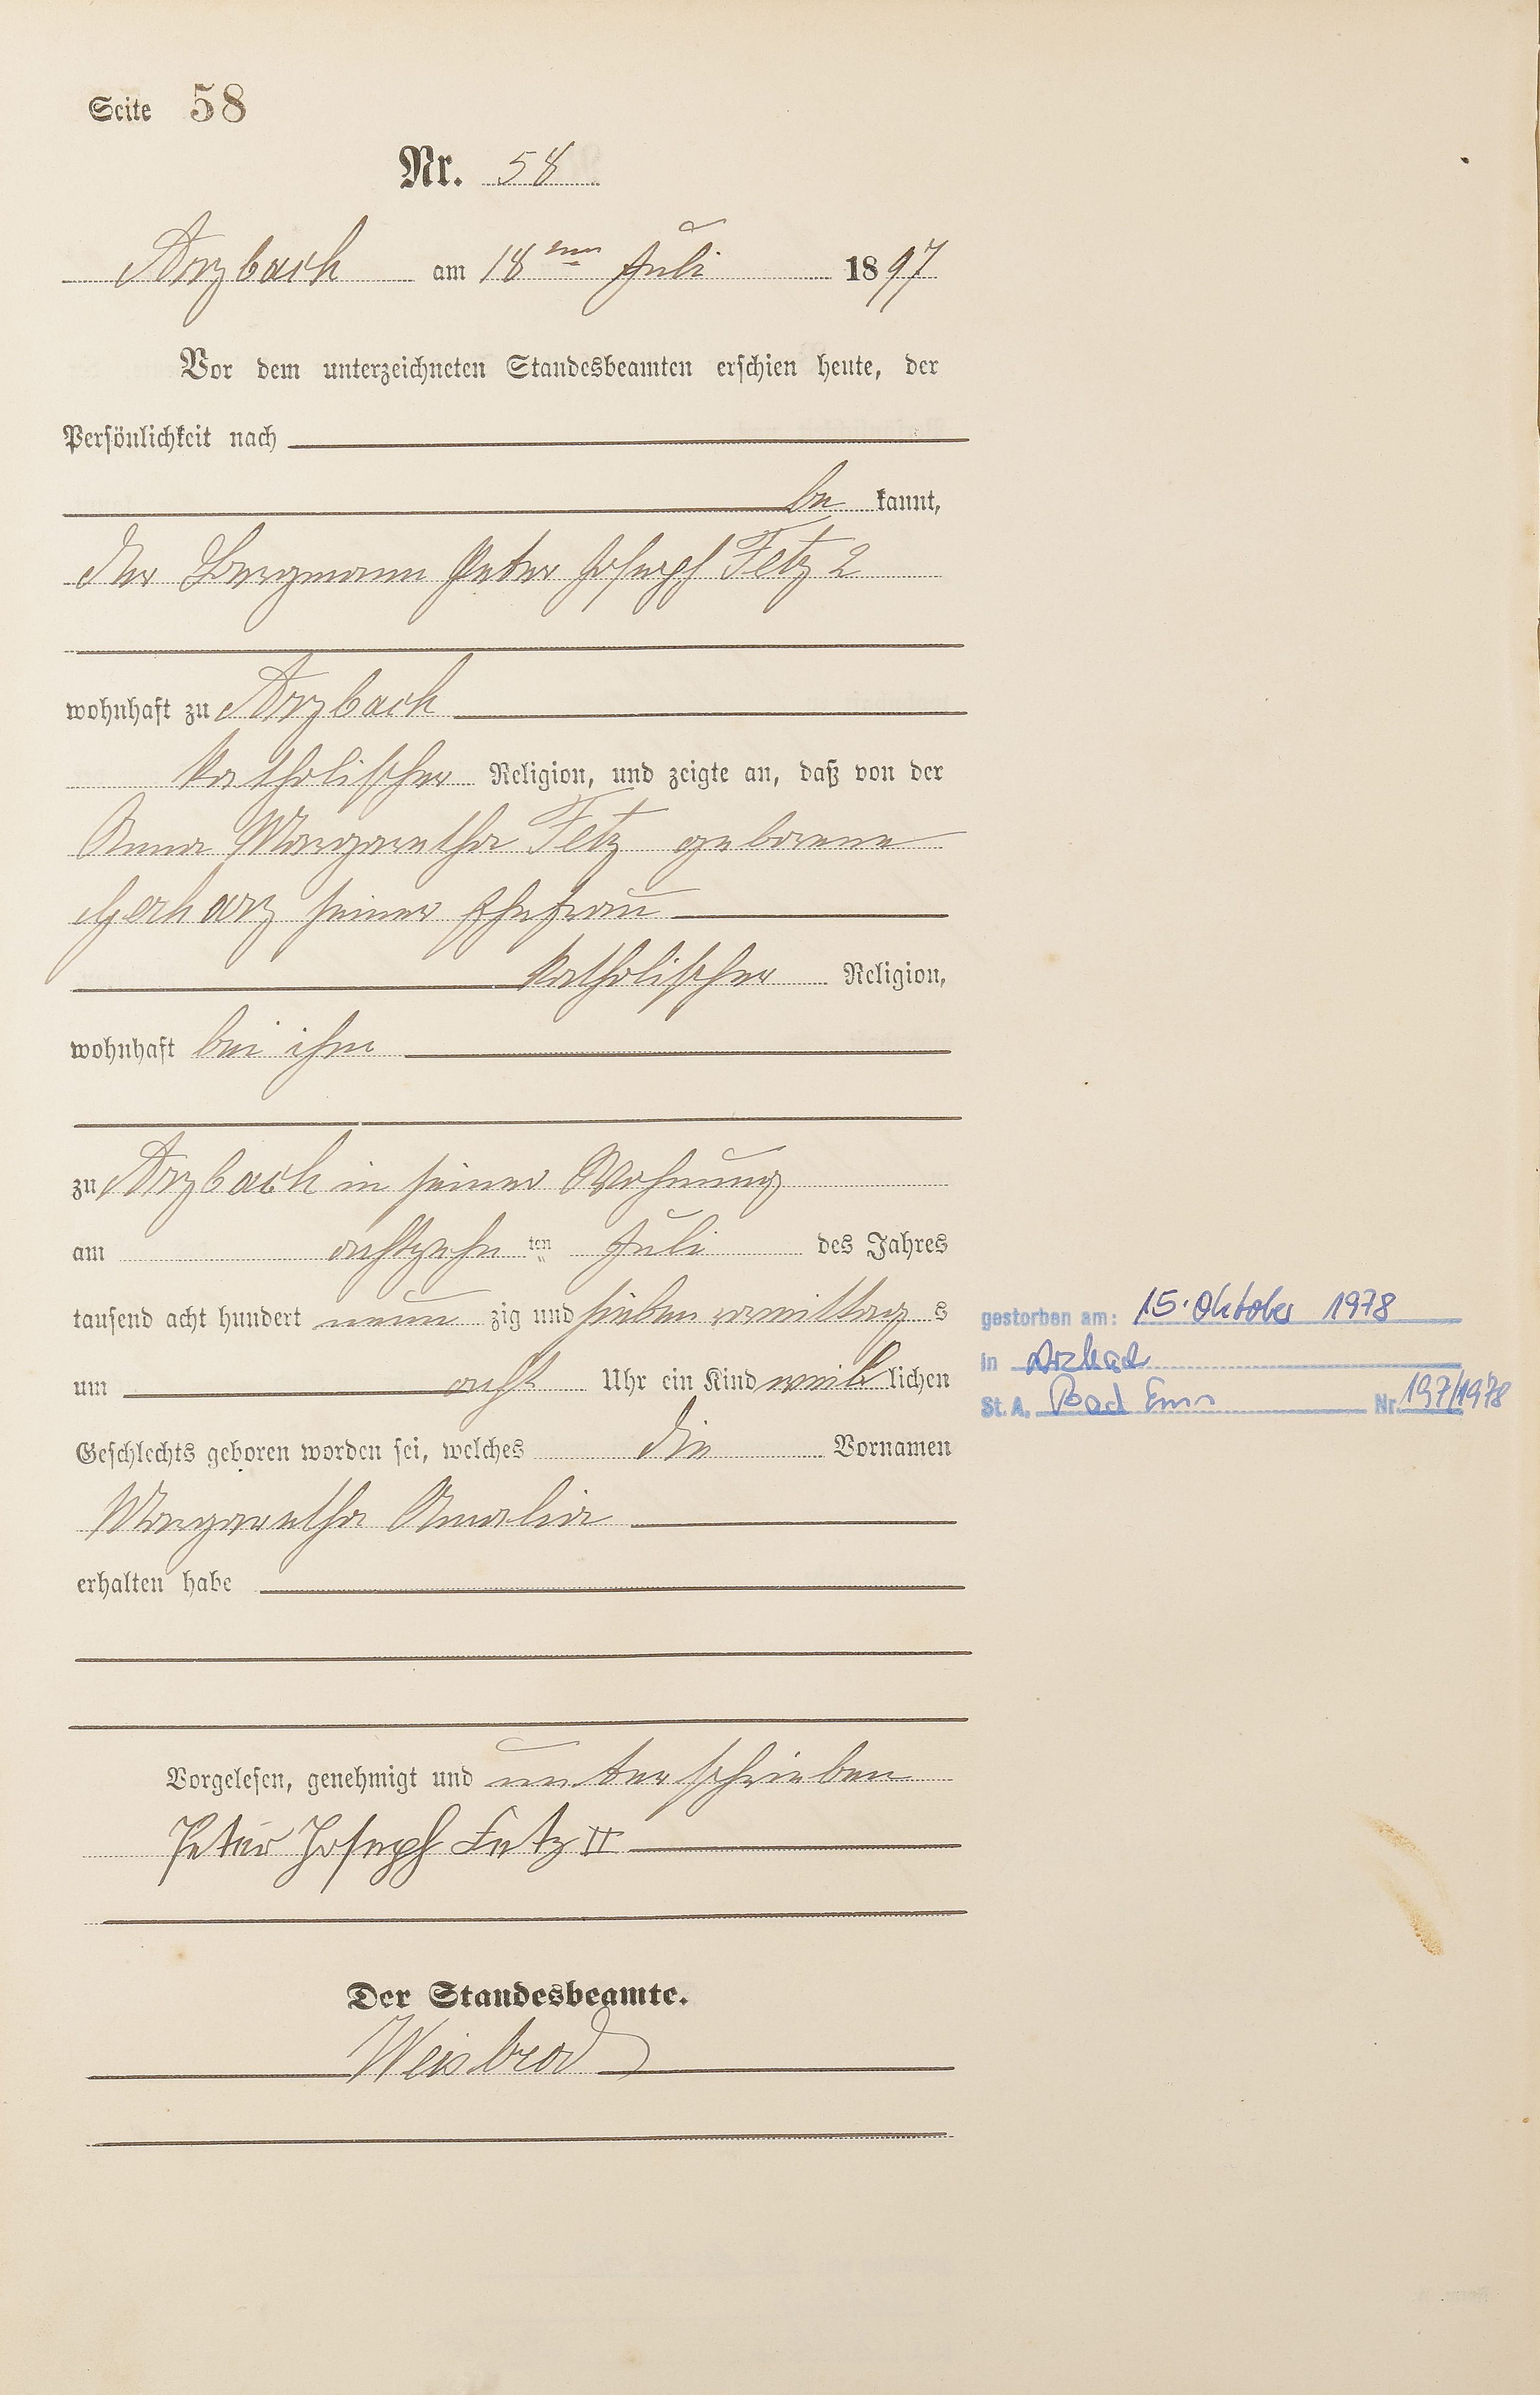 Seite 58
Nr. 58
Arzbach am 18ten Juli 1897
Vor dem unterzeichneten Standesbeamten erschien heute, der
Persönlichkeit nach
be kannt,
der Bergmann Peter Joseph Fetz 2
wohnhaft zu Arzbach
katholischer Religion, und zeigte an, daß von der
Anna Margaretha Fetz geborene
Gerharz seiner Ehefrau
katholischer Religion,
wohnhaft bei ihm
zu Arzbach in seiner Wohnung
am achtzehn ten Juli des Jahres
tausend acht hundert neun zig und sieben vormittag s
um acht Uhr ein Kind weib lichen
Geschlechts geboren worden sei, welches die Vornamen
Margaretha Amalia
erhalten habe
Vorgelesen, genehmigt und unterschrieben
Peter Joseph Fetz II
Der Standesbeamte.
Weisbrod
gestorben am: 15. Oktober 1978
in Arzbach
St. A. Bad Ems Nr. 197/1978